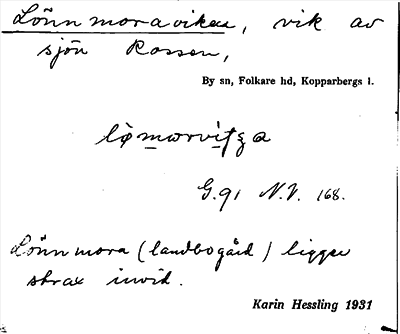 Lönnmoraviken, vik av
sjön Rossen,
By sn, Folkare hd, Kopparbergs l.
G. 91 N.V. 168.
Lönnmora (landbogård) ligger
strax invid.
Karin Hessling 1931